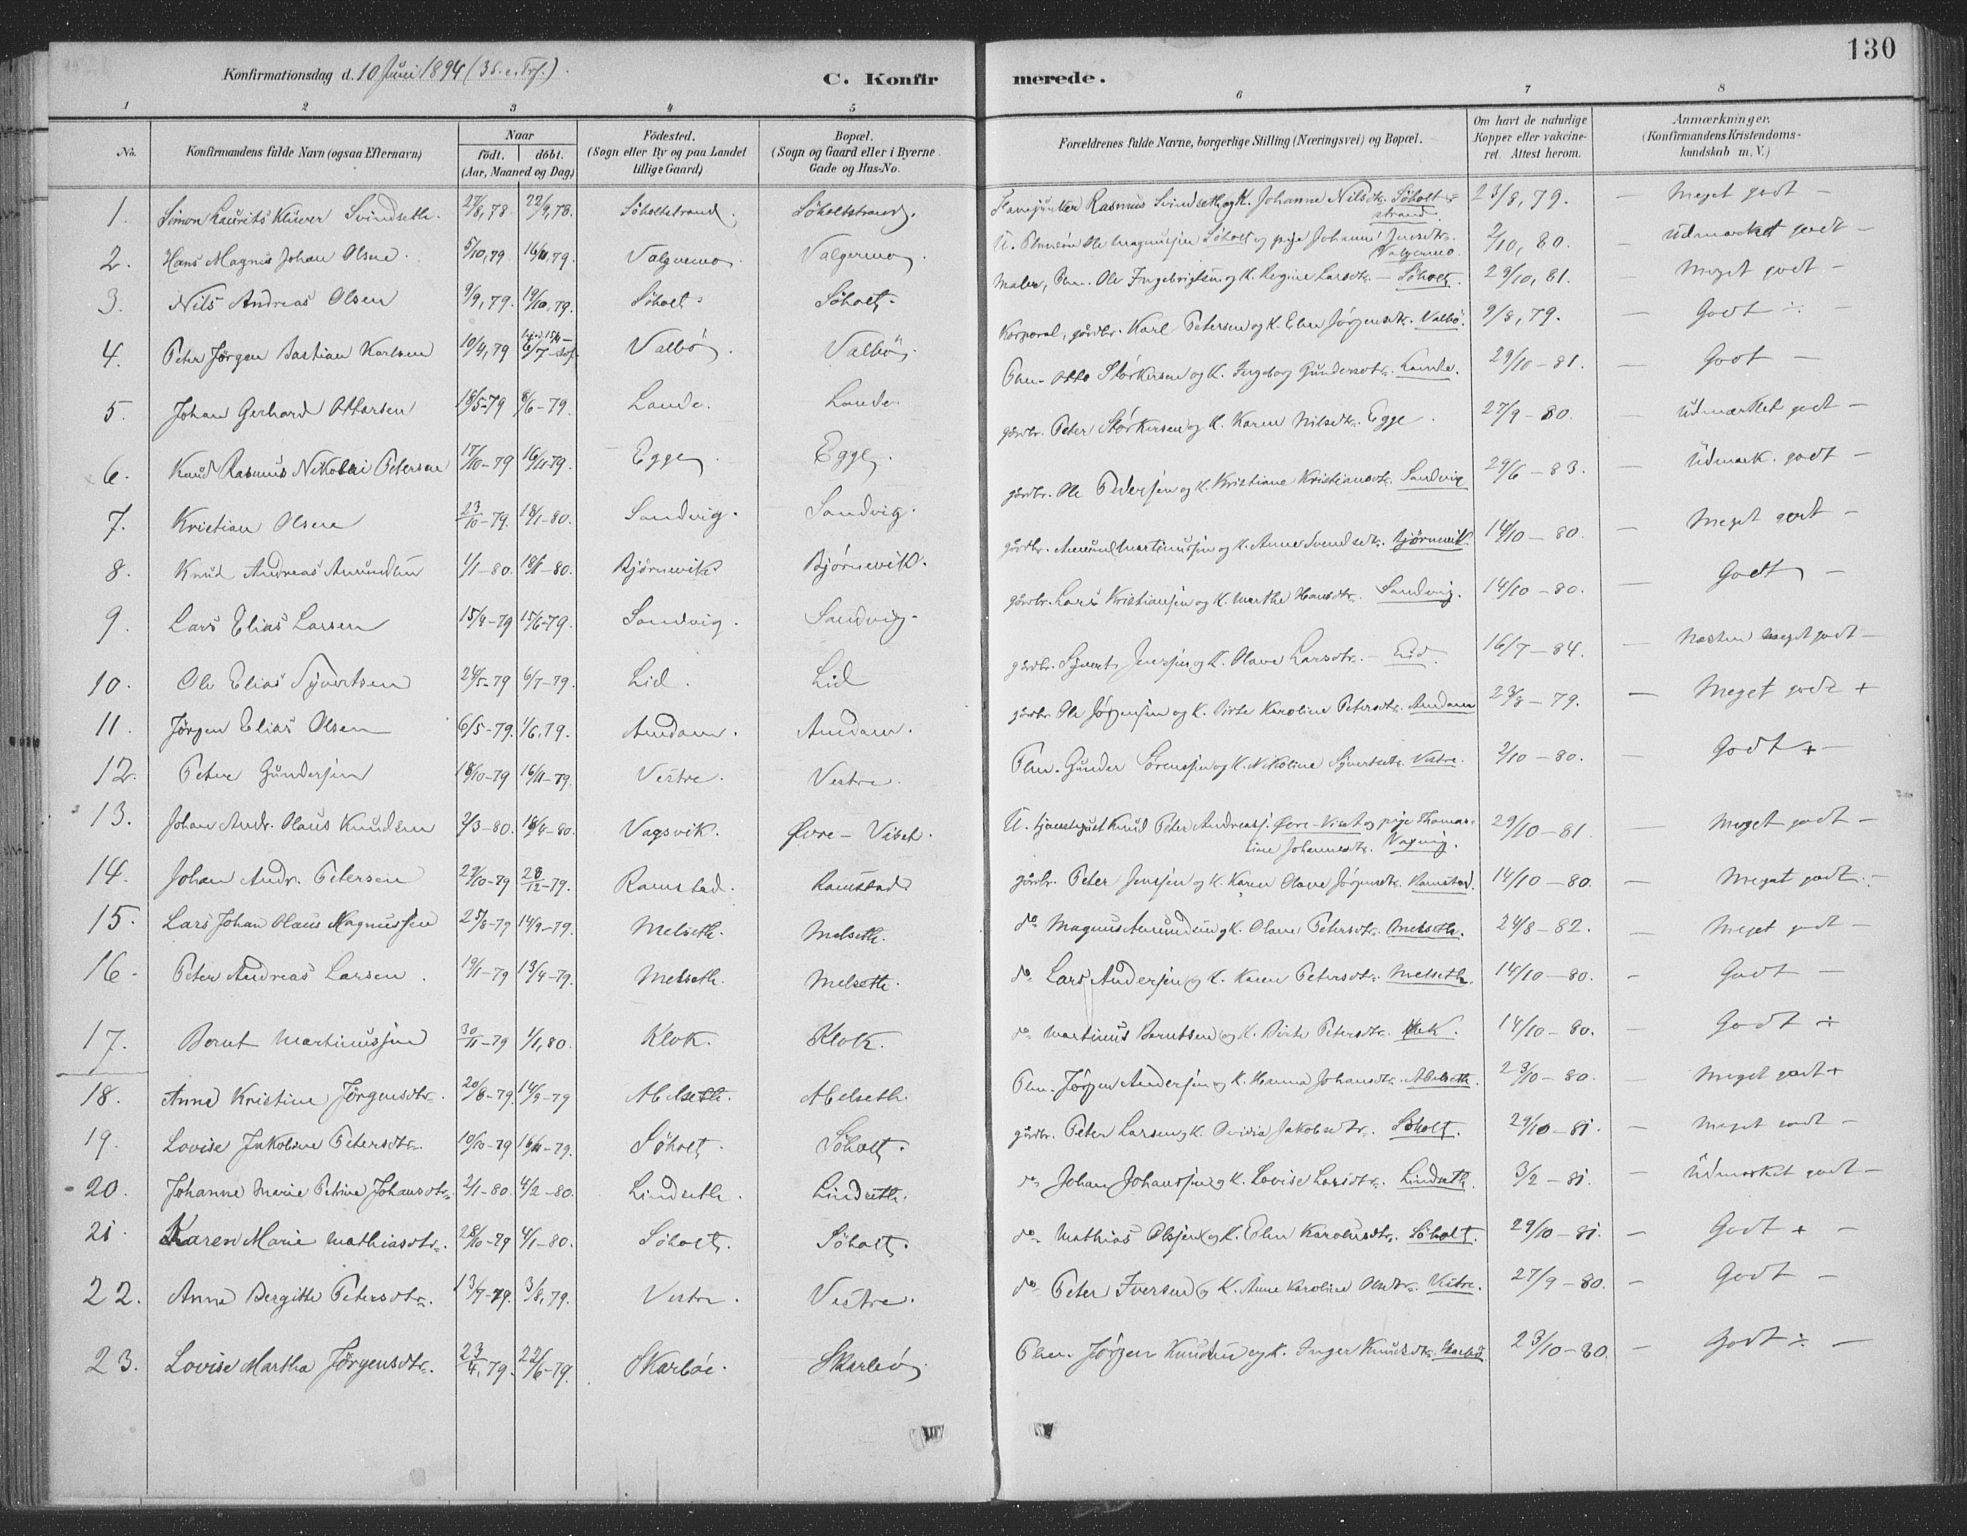 130
Konfirmationsdag d. 10 Juni 1894 (3 S. e. Trf.).
C. Konfirmerede.
1 2 3 4 5 6 7 8
No. Konfirmandens fulde Navn (ogsaa Efternavn) Naar født. døbt. (Aar, Maaned og Dag) Fødested. (Sogn eller By og paa Landet tillige Gaard) Bopæl. (Sogn og Gaard eller i Byerne Gade og Hus-No. Forældrenes fulde Navne, borgerlige Stilling (Næringsvei) og Bopæl. Om havt de naturlige Kopper eller vakcineret. Attest herom. Anmærkninger. (Konfirmandens Kristendomskundskab m. V.)
1. Simon Laurits Klüver Svindseth. 27/8, 78. 22/9, 78. Söholtstrand. Söholtstrand. Rasmus Svindseth og K. Johanne Nilsdtr. Söholtstrand. 23/8, 79. — Meget godt —
2. Hans Magnus Johan Olsen. 5/10, 79 16/11, 79. Valgermo Valgermo U. Ole Magnussen Söholt og pige Johanne Jensdtr. Valgermo. 2/10, 80. — Udmærket godt —
3. Nils Andreas Olsen 9/9, 79. 19/10, 79. Söholt. Söholt. Maler, Plm. Ole Ingebrigtsen og K. Regine Larsdtr. — Söholt. 29/10, 81. — Meget godt —
4. Peter Jørgen Bastian Karlsen 10/4, 79 6/7 Valbö. Valbö. Korporal, gårdbr. Karl Petersen og K. Elen Jørgensdtr. Valbö. 9/8, 79. — Godt ÷
5. Johan Gerhard Ottosen 18/5-79 8/6-79. Lande. Lande. Plm. Otto Størkersen og K. Ingeborg Gundersdtr. Lande. 29/10-81. — Godt —
6. Knud Rasmus Nikolai Petersen 17/10-79 16/11-79. Egge Egge. gårdbr. Peter Størkersen og K. Karen Nilsdtr. Egge. 27/9-80. — Udmærket godt —
7. Kristian Olsen 23/10-79. 18/1-80. Sandvig. Sandvig. gårdbr. Ole Pedersen og K. Kristiane Kristiansdtr. Sandvig 29/6-83. — Udmærk. godt —
8. Knut Andreas Amundsen 1/1-80. 18/1-80. Bjørnevik. Bjørnevik. gårdbr. Amund Martinussen og K. Anne Svendsdtr. Bjørnevik. 14/10-80. — Meget godt —
9. Lars Elias Larsen 15/4-79 15/6-79. Sandvig. Sandvig. gårdbr. Lars Kristiansen og K. Marthe Hansdtr. Sandvig. 14/10-80. — Godt —
10. Ole Elias Syvertsen 24/5-79 6/7-79. Lid. Lid gårdbr. Syvert Jenssen og K. Olave Larsdtr. — Lid. 16/7-84. — Næsten meget godt —
11. Jørgen Elias Olsen 6/5-79. 1/6, 79. Amdam. Amdam. gårdbr. Ole Jørgensen og K. Birte Karoline Petersdtr. Amdam 23/8-79. — Meget godt +
12. Peter Gundersen 18/10-79 16/11-79. Vestre. Vestre. Plm. Gunder Sørenssen og K. Nikoline Syvertsdtr. Vestre. 2/10-80. — Godt + —
13. Johan Andr. Olaus Knudsen 2/3-80. 18/4-80. Vagsvik. Øvre-Viset. U. Knud Peter Andreass. Øvre-Viset og pige Thomasine Johannesdtr. Vagsvig. 29/10-81. — Meget godt —
14. Johan Andr. Petersen 29/10-79 28/12-79. Ramstad. Ramstad gårdbr. Peter Jenssen og K. Karen Olave Jørgensdtr. Ramstad. 14/10-80. — Meget godt. —
15. Lars Johan Olaus Magnussen 25/8-79 14/9-79. Melseth. Melseth. do Magnus Amundsen og K. Olave Petersdtr. Melseth. 24/8-82. — Meget godt —
16. Peter Andreas Larsen. 19/1-79 13/4-79. Melseth. Melseth. do Lars Andersen og K. Karen Petersdtr. Melseth. 14/10-80. — Godt —
17. Bernt Martinussen 30/11-79 1/1, 80. Klok. Klok. do Martinus Berntsen og K. Birte Petersdtr. Klok. 14/10-80. — Godt ÷
18. Anne Kristine Jørgensdtr. 20/8-79. 14/9-79 Abelseth. Abelseth. Plm. Jørgen Andersen og K. Hanna Johansdtr. Abelseth. 23/10-80. — Meget godt +
19. Lovise Jakobine Petersdtr. 10/10-79 16/11-79. Söholt. Söholt. gårdbr. Peter Larsen og K. Jakobsdtr. Söholt. 29/10-81. — Meget godt —
20. Johanne Marie Petrine Johansdtr. 2/1-80. 4/2-80. Lindseth. Lindseth. do Johan Johanssen og K. Lovise Larsdtr. Lindseth. 3/2-81. — Udmærket godt —
21. Karen Marie Mathiasdtr. 28/10-79 4/1-80. Söholt. Söholt. do Mathias Olsen og K. Elen Karolusdtr. Söholt. 29/10-81. — Godt + —
22. Anne Bergitte Petersdtr. 13/7-79. 3/8, 79. Vestre. Vestre. do Peter Iversen og K. Anne Karoline Olsdtr. Vestre. 27/9-80. — Godt —
23. Lovise Martha Jørgensdtr. 23/4, 79. 22/6-79. Skarbö. Skarbö. Plm. Jørgen Knudsen og K. Inger Knudsdtr. Skarbö 23/10-80. — Godt ÷ —